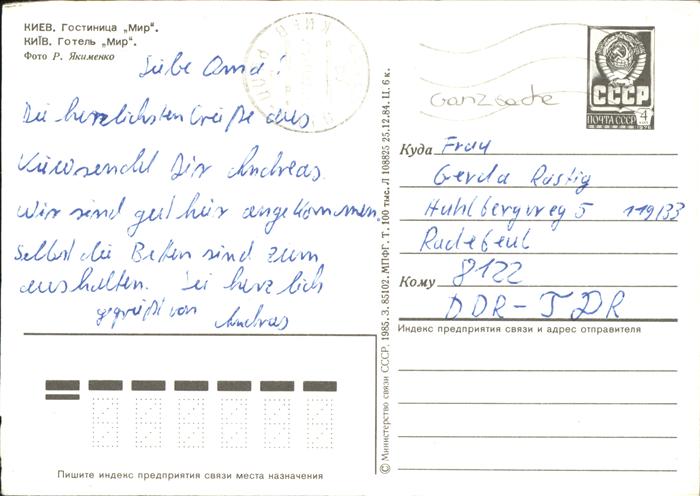 КИЕВ. Гостиница „Мир“.
КИЇВ. Готель „Мир“.
Фото Р. Якименко
Liebe Oma!
Die herzlichsten Grüße aus
Kiew sendet Dir Andreas.
Wir sind gut hier angekommen.
Selbst die Betten sind zum
aushalten. Sei herzlich
gegrüßt von Andreas
Ganzsache
СССР
ПОЧТА СССР
4
Куда Frau
Gerda Rostig
Huhlbergweg 5 119/33
Radebeul
Кому 8122
DDR-ГДR
Индекс предприятия связи и адрес отправителя
© Министерство связи СССР. 1985. З. 85102. МПФГ. Т. 100 тыс. Л 108825 25.12.84. Ц. 6 к.
Пишите индекс предприятия связи места назначения